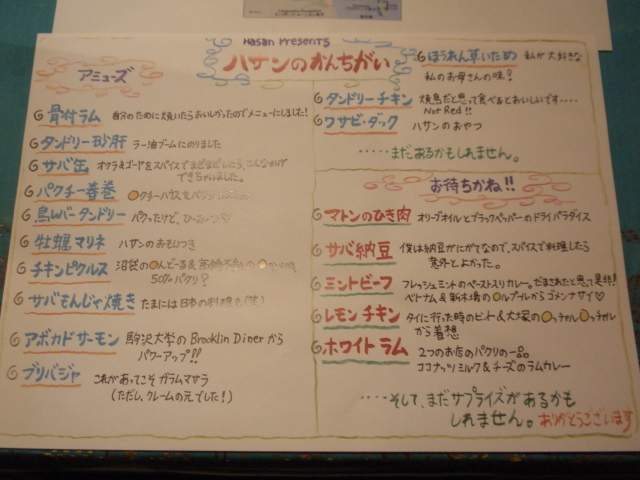 Hasan Presents
ハサンのかんちがい
アミューズ
骨付ラム 自分のために焼いたらおいしかったのでメニューにしました!
タンドリー砂肝 ラー油ブームにのりました
サバ缶 オクラ&ゴーヤをスパイスでまぜまぜしたら、こんなのができちゃいました。
パクチー春巻
鳥レバータンドリー パクったけど、ひみつ♡
牡蠣マリネ ハサンのおもいつき
チキンピクルス
50%パクリ?
サバもんじゃ焼き たまには日本の料理も(笑)
アボカドサーモン 駒沢大学のBrooklin Dinerから
パワーアップ!!
ブリバジャ これがあってこそガラムマサラ
(ただし、クレームの元でした!)
ほうれん草いため 私が大好きな
私のお母さんの味?
タンドリーチキン 焼鳥だと思って食べるとおいしいです‥‥
Not Red!!
ワサビ・ダック ハサンのおやつ
‥‥‥まだあるかもしれません。
お待ちかね!!
マトンのひき肉 オリーブオイルとブラックペッパーのドライパラダイス
サバ納豆 僕は納豆がにがてなので、スパイスで料理したら
意外とよかった。
ミントビーフ フレッシュミントのペースト入りカレー。だまされたと思って是非!
ベトナム&新木場の○ルブールからゴメンナサイ♡
レモンチキン タイに行った時のヒント&大塚の○っチャル○っチャル
から着想
ホワイトラム 2つのお店のパクりの一品
ココナッツミルク&チーズのラムカレー
‥‥そして、まだサプライズがあるかも
しれません。ありがとうございます